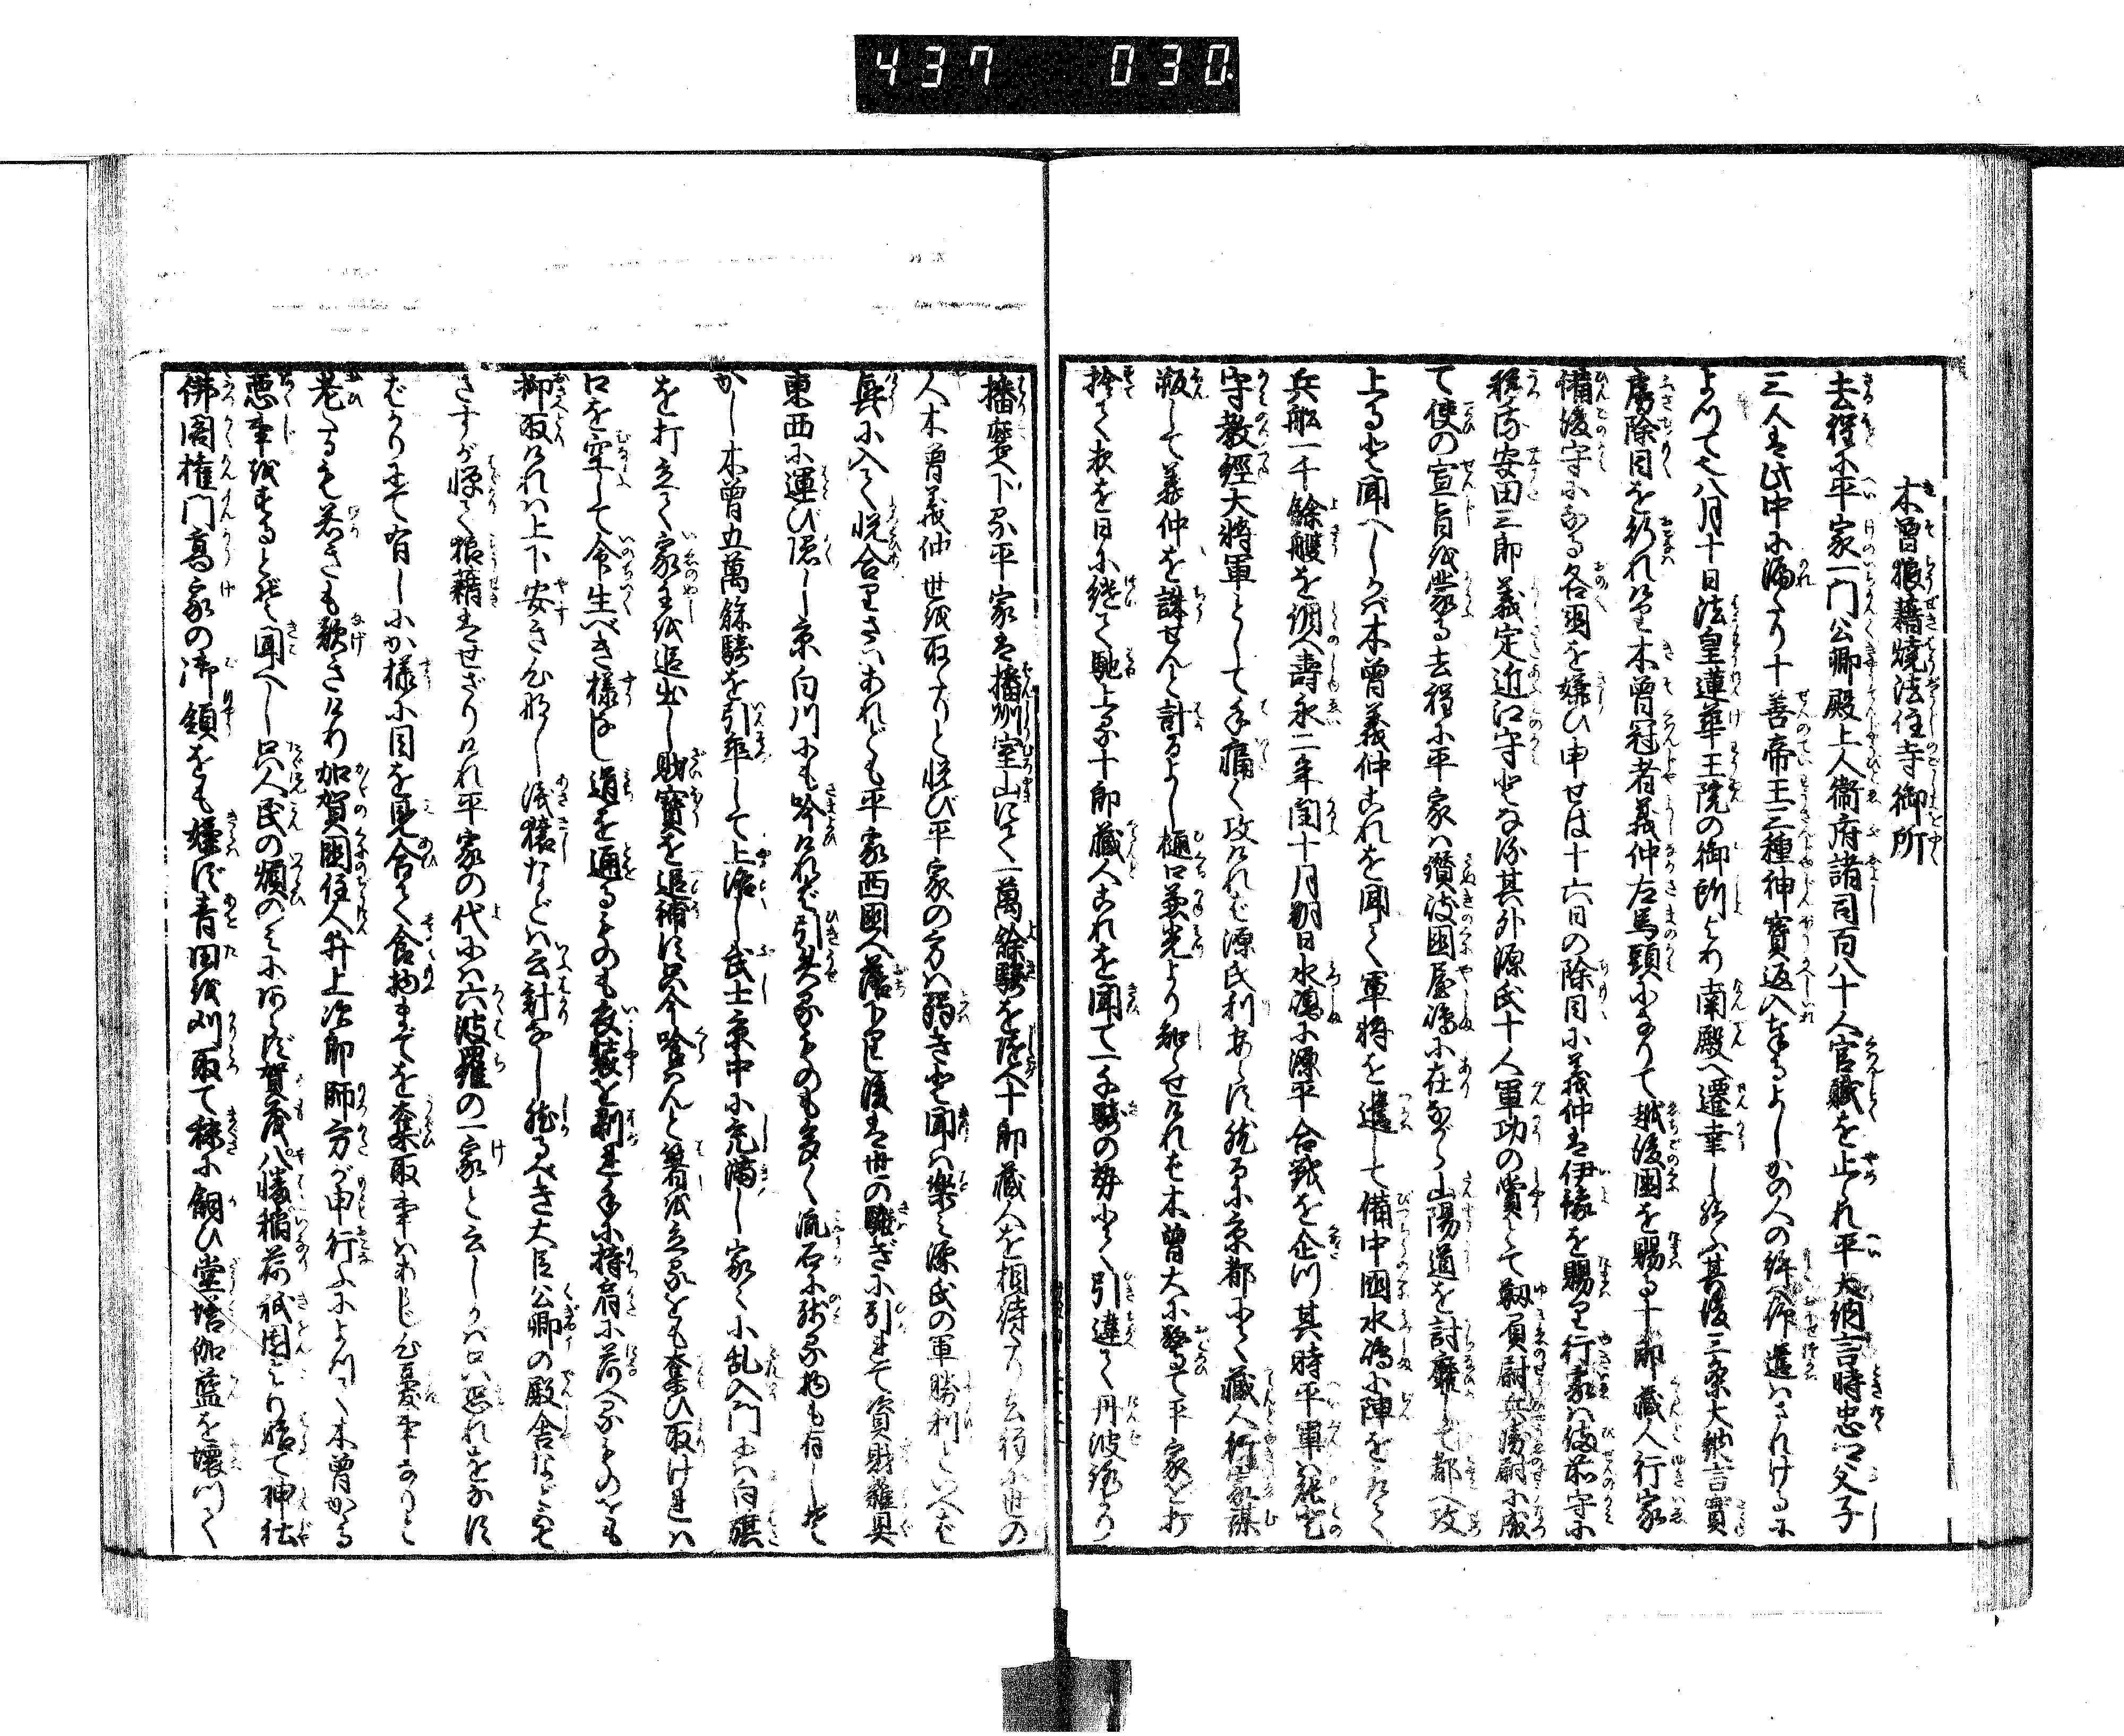 437 030.
木曽狼藉焼法住寺御所
去程に平家一門公卿殿上人衛府諸司百八十人官職を止られ平大納言時忠卿父子
三人は此中に漏たり十善帝王三種神宝返入奉るよしかの人の許へ仰遣はされけるに
よつて也八月十日法皇蓮華王院の御所より南殿へ遷幸し給ふ其後三条大納言実
房除目を行れけり木曽冠者義仲左馬頭になりて越後国を賜る十郎蔵人行家
備後守になる各国を嫌ひ申せば十六日の除目に義仲は伊予を賜り行家は備前守に
移る安田三郎義定近江守となる其外源氏十人軍功の賞とて靱負尉兵衛尉に成
て使の宣旨を蒙る去程に平家は讃岐国屋嶋に在ながら山陽道を討靡して都へ攻
上ると聞へしかば木曽義仲これを聞て軍将を遣して備中国水嶋に陣をとる
兵船一千餘艘を調へ寿永二年閏十月朔日水嶋に源平合戦を企つ其時平軍は能登
守教経大将軍として手痛く攻ければ源氏利あらず然るに京都にて蔵人行家謀
叛して義仲を誅せんと計るよし樋口兼光より知らせければ木曽大に驚て平家を打
捨て夜を日に継て馳上る十郎蔵人これを聞て一千騎の勢にて引違て丹波路より
播磨へ下る平家は播州室山にて一萬餘騎を随へ十郎蔵人を相待たり去程に世の
人木曽義仲世を取たりと悦び平家の方は弱きと聞は楽み源氏の軍勝利といへば
興に入て悦合りさはあれども平家西国へ落下り後は世の騒ぎに引れて資財雑具
東西に運び隠し京白川にも吟ければ引失ふもの多く
かし木曽五萬餘騎を引率して上洛し武士京中に充満し家々に乱入門には白旗
を打立て家主を追出し財宝を追捕す只今喰はんと箸を立るをも奪ひ取ければ
口を空して命生べき様なし道を通るものも衣装を剥れ手に持肩に荷へるものをも
抑取ければ上下安き心なし浅猿などは云計なし然るべき大臣公卿の殿舎などこそ
さすが憚て狼藉はせざりけれ平家の代には六波羅の一家と云しかは只恐れをなす
ばかりにて有しにか様に目を見合て食物までを奪取事はあらじ心憂事なりと
老たるも若きも歎きけり加賀国住人井上次郎師方が申行ふによつて木曽かかる
悪事をすると聞へし只人民の煩のみにあらず賀茂八幡稲荷祇園より始て神社
佛閣権門高家の御領をも嫌はず青田を刈取て秣に飼ひ堂塔伽藍を壊つて